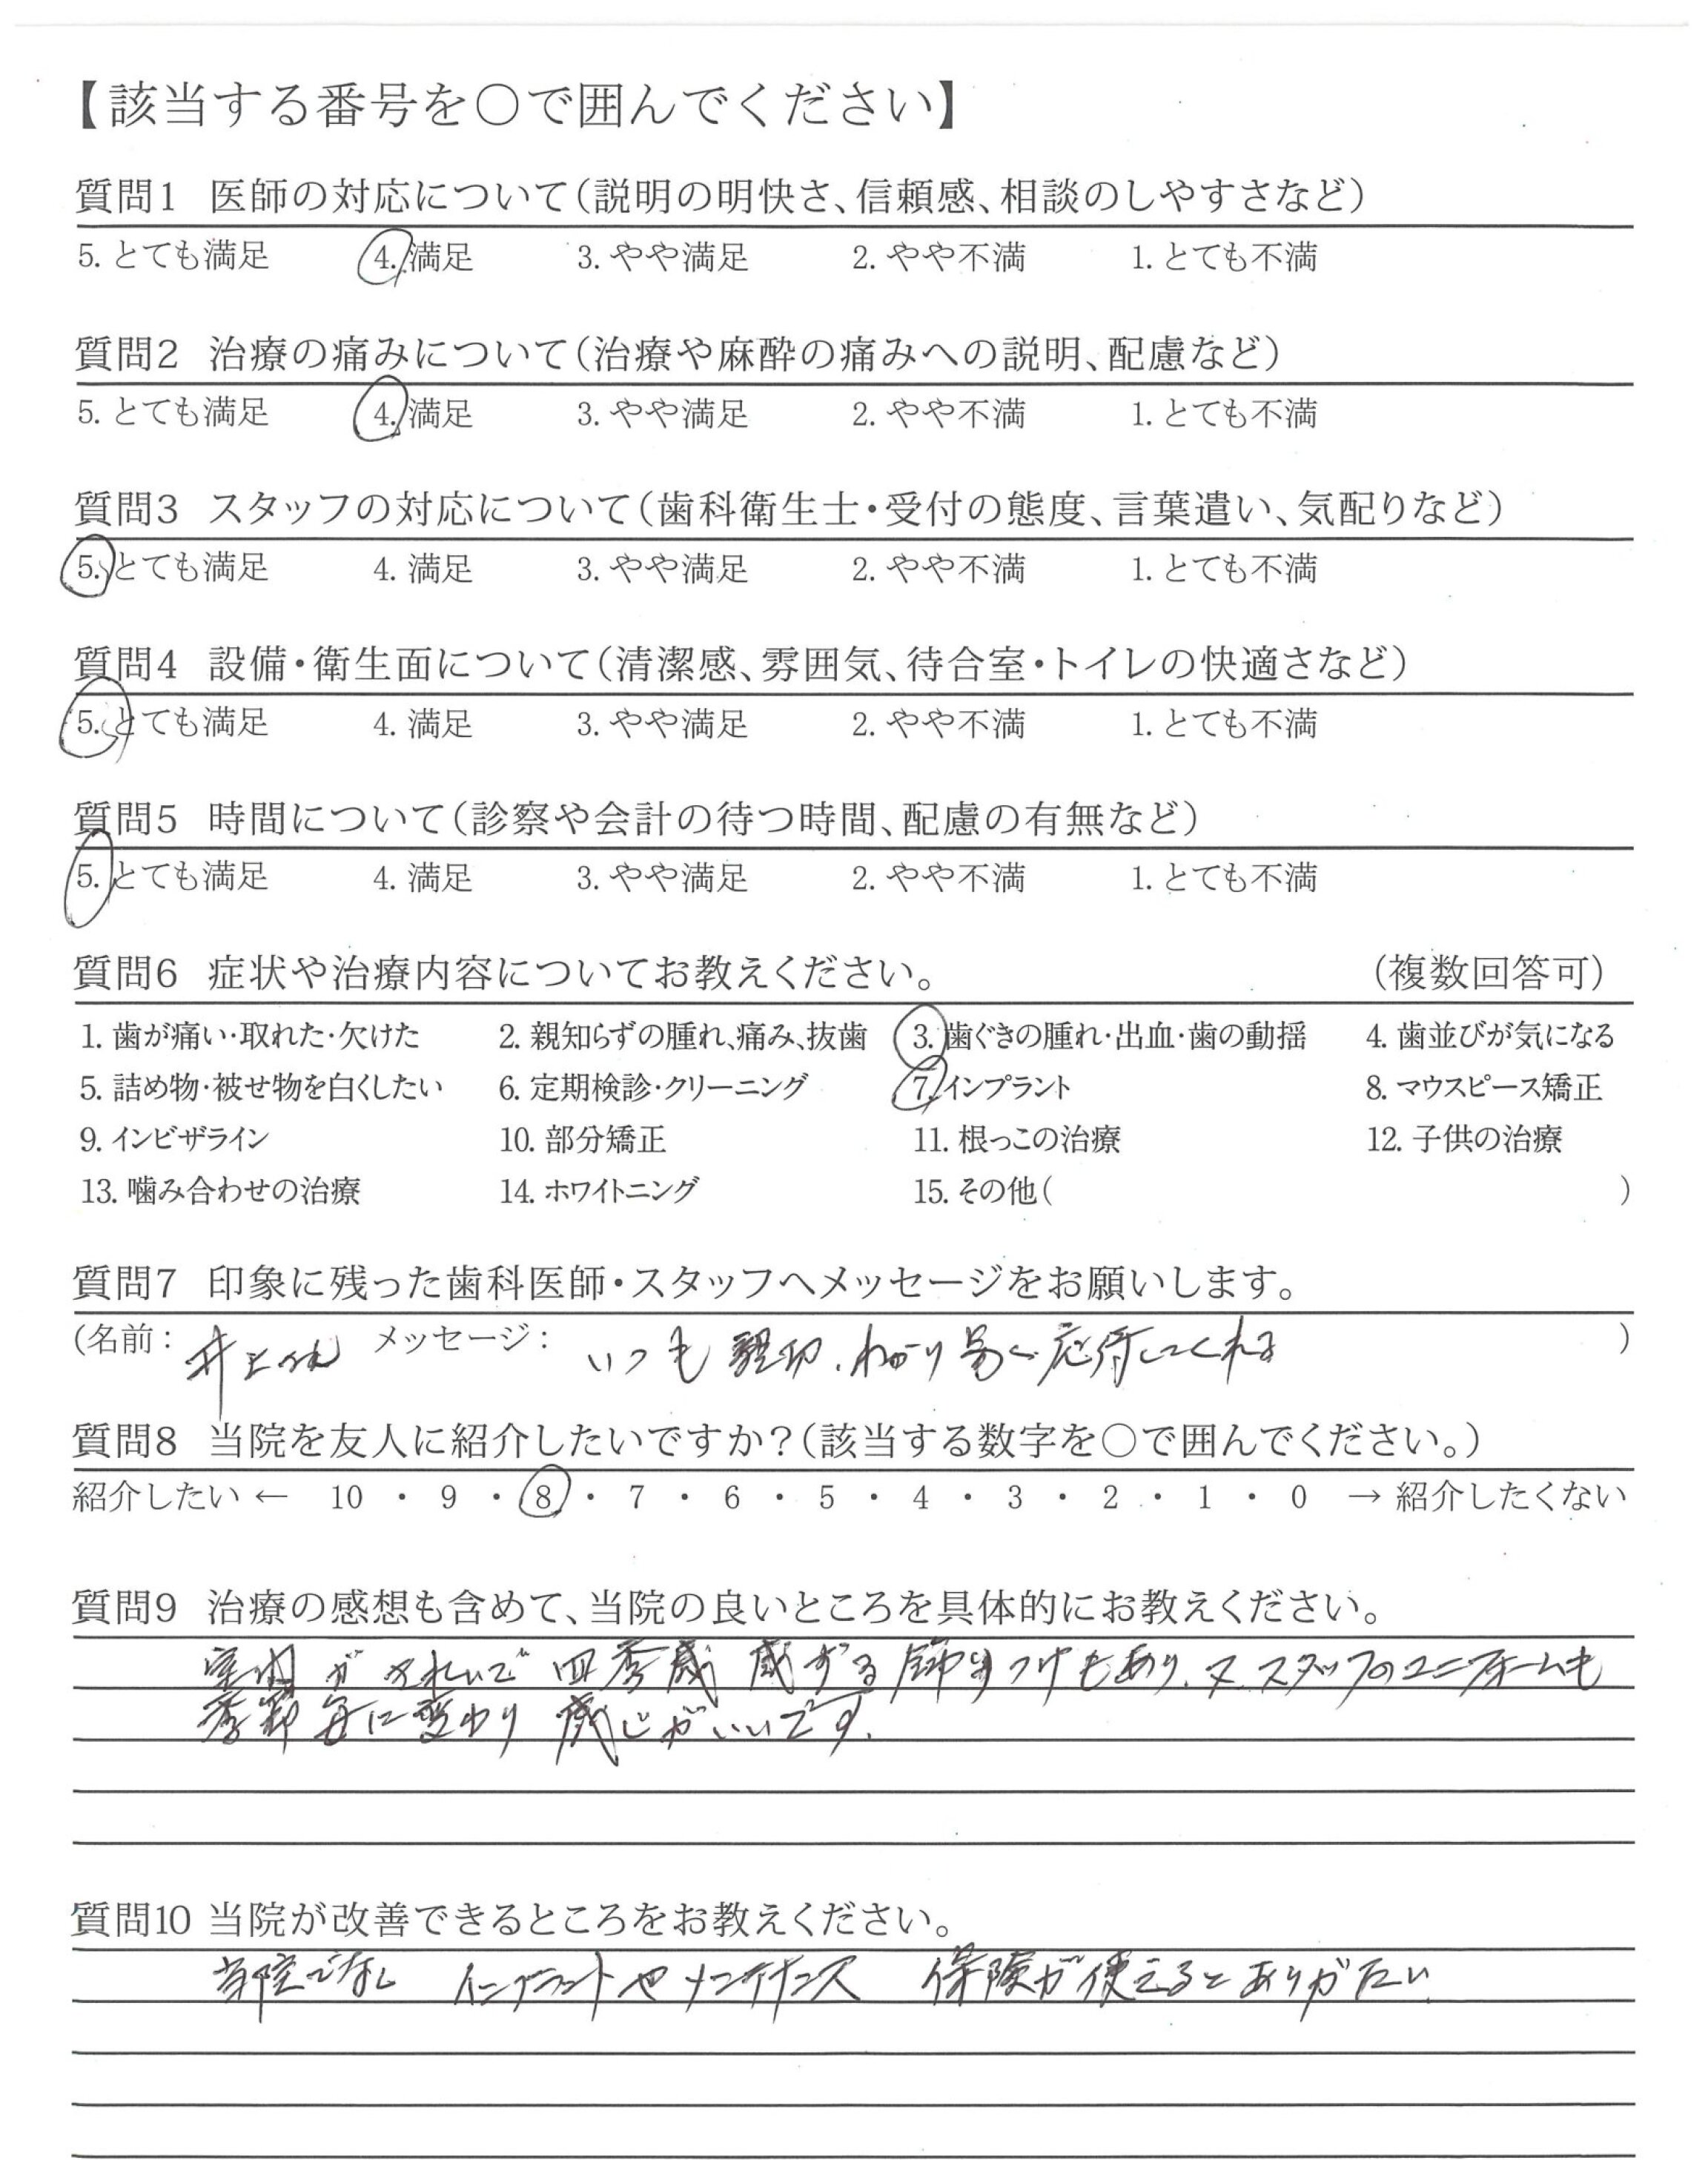 【該当する番号を○で囲んでください】
質問1 医師の対応について(説明の明快さ、信頼感、相談のしやすさなど)
5. とても満足 4. 満足 3. やや満足 2. やや不満 1. とても不満
質問2 治療の痛みについて(治療や麻酔の痛みへの説明、配慮など)
5. とても満足 4. 満足 3. やや満足 2. やや不満 1. とても不満
質問3 スタッフの対応について(歯科衛生士・受付の態度、言葉遣い、気配りなど)
5. とても満足 4. 満足 3. やや満足 2. やや不満 1. とても不満
質問4 設備・衛生面について(清潔感、雰囲気、待合室・トイレの快適さなど)
5. とても満足 4. 満足 3. やや満足 2. やや不満 1. とても不満
質問5 時間について(診察や会計の待つ時間、配慮の有無など)
5. とても満足 4. 満足 3. やや満足 2. やや不満 1. とても不満
質問6 症状や治療内容についてお教えください。 (複数回答可)
1. 歯が痛い・取れた・欠けた 2. 親知らずの腫れ、痛み、抜歯 3. 歯ぐきの腫れ・出血・歯の動揺 4. 歯並びが気になる
5. 詰め物・被せ物を白くしたい 6. 定期検診・クリーニング 7. インプラント 8. マウスピース矯正
9. インビザライン 10. 部分矯正 11. 根っこの治療 12. 子供の治療
13. 噛み合わせの治療 14. ホワイトニング 15. その他( )
質問7 印象に残った歯科医師・スタッフへメッセージをお願いします。
(名前: 井上 メッセージ: いつも親切、わかり易く応待してくれる )
質問8 当院を友人に紹介したいですか?(該当する数字を○で囲んでください。)
紹介したい ← 10 ・ 9 ・ 8 ・ 7 ・ 6 ・ 5 ・ 4 ・ 3 ・ 2 ・ 1 ・ 0 → 紹介したくない
質問9 治療の感想も含めて、当院の良いところを具体的にお教えください。
室内がきれいで 四季感 感ずる飾りつけもあり、又、スタッフのユニフォームも
季節毎に変わり 感じがいいです。
質問10 当院が改善できるところをお教えください。
当院でなし インプラントやメンテナンス 保険が使えるとありがたい